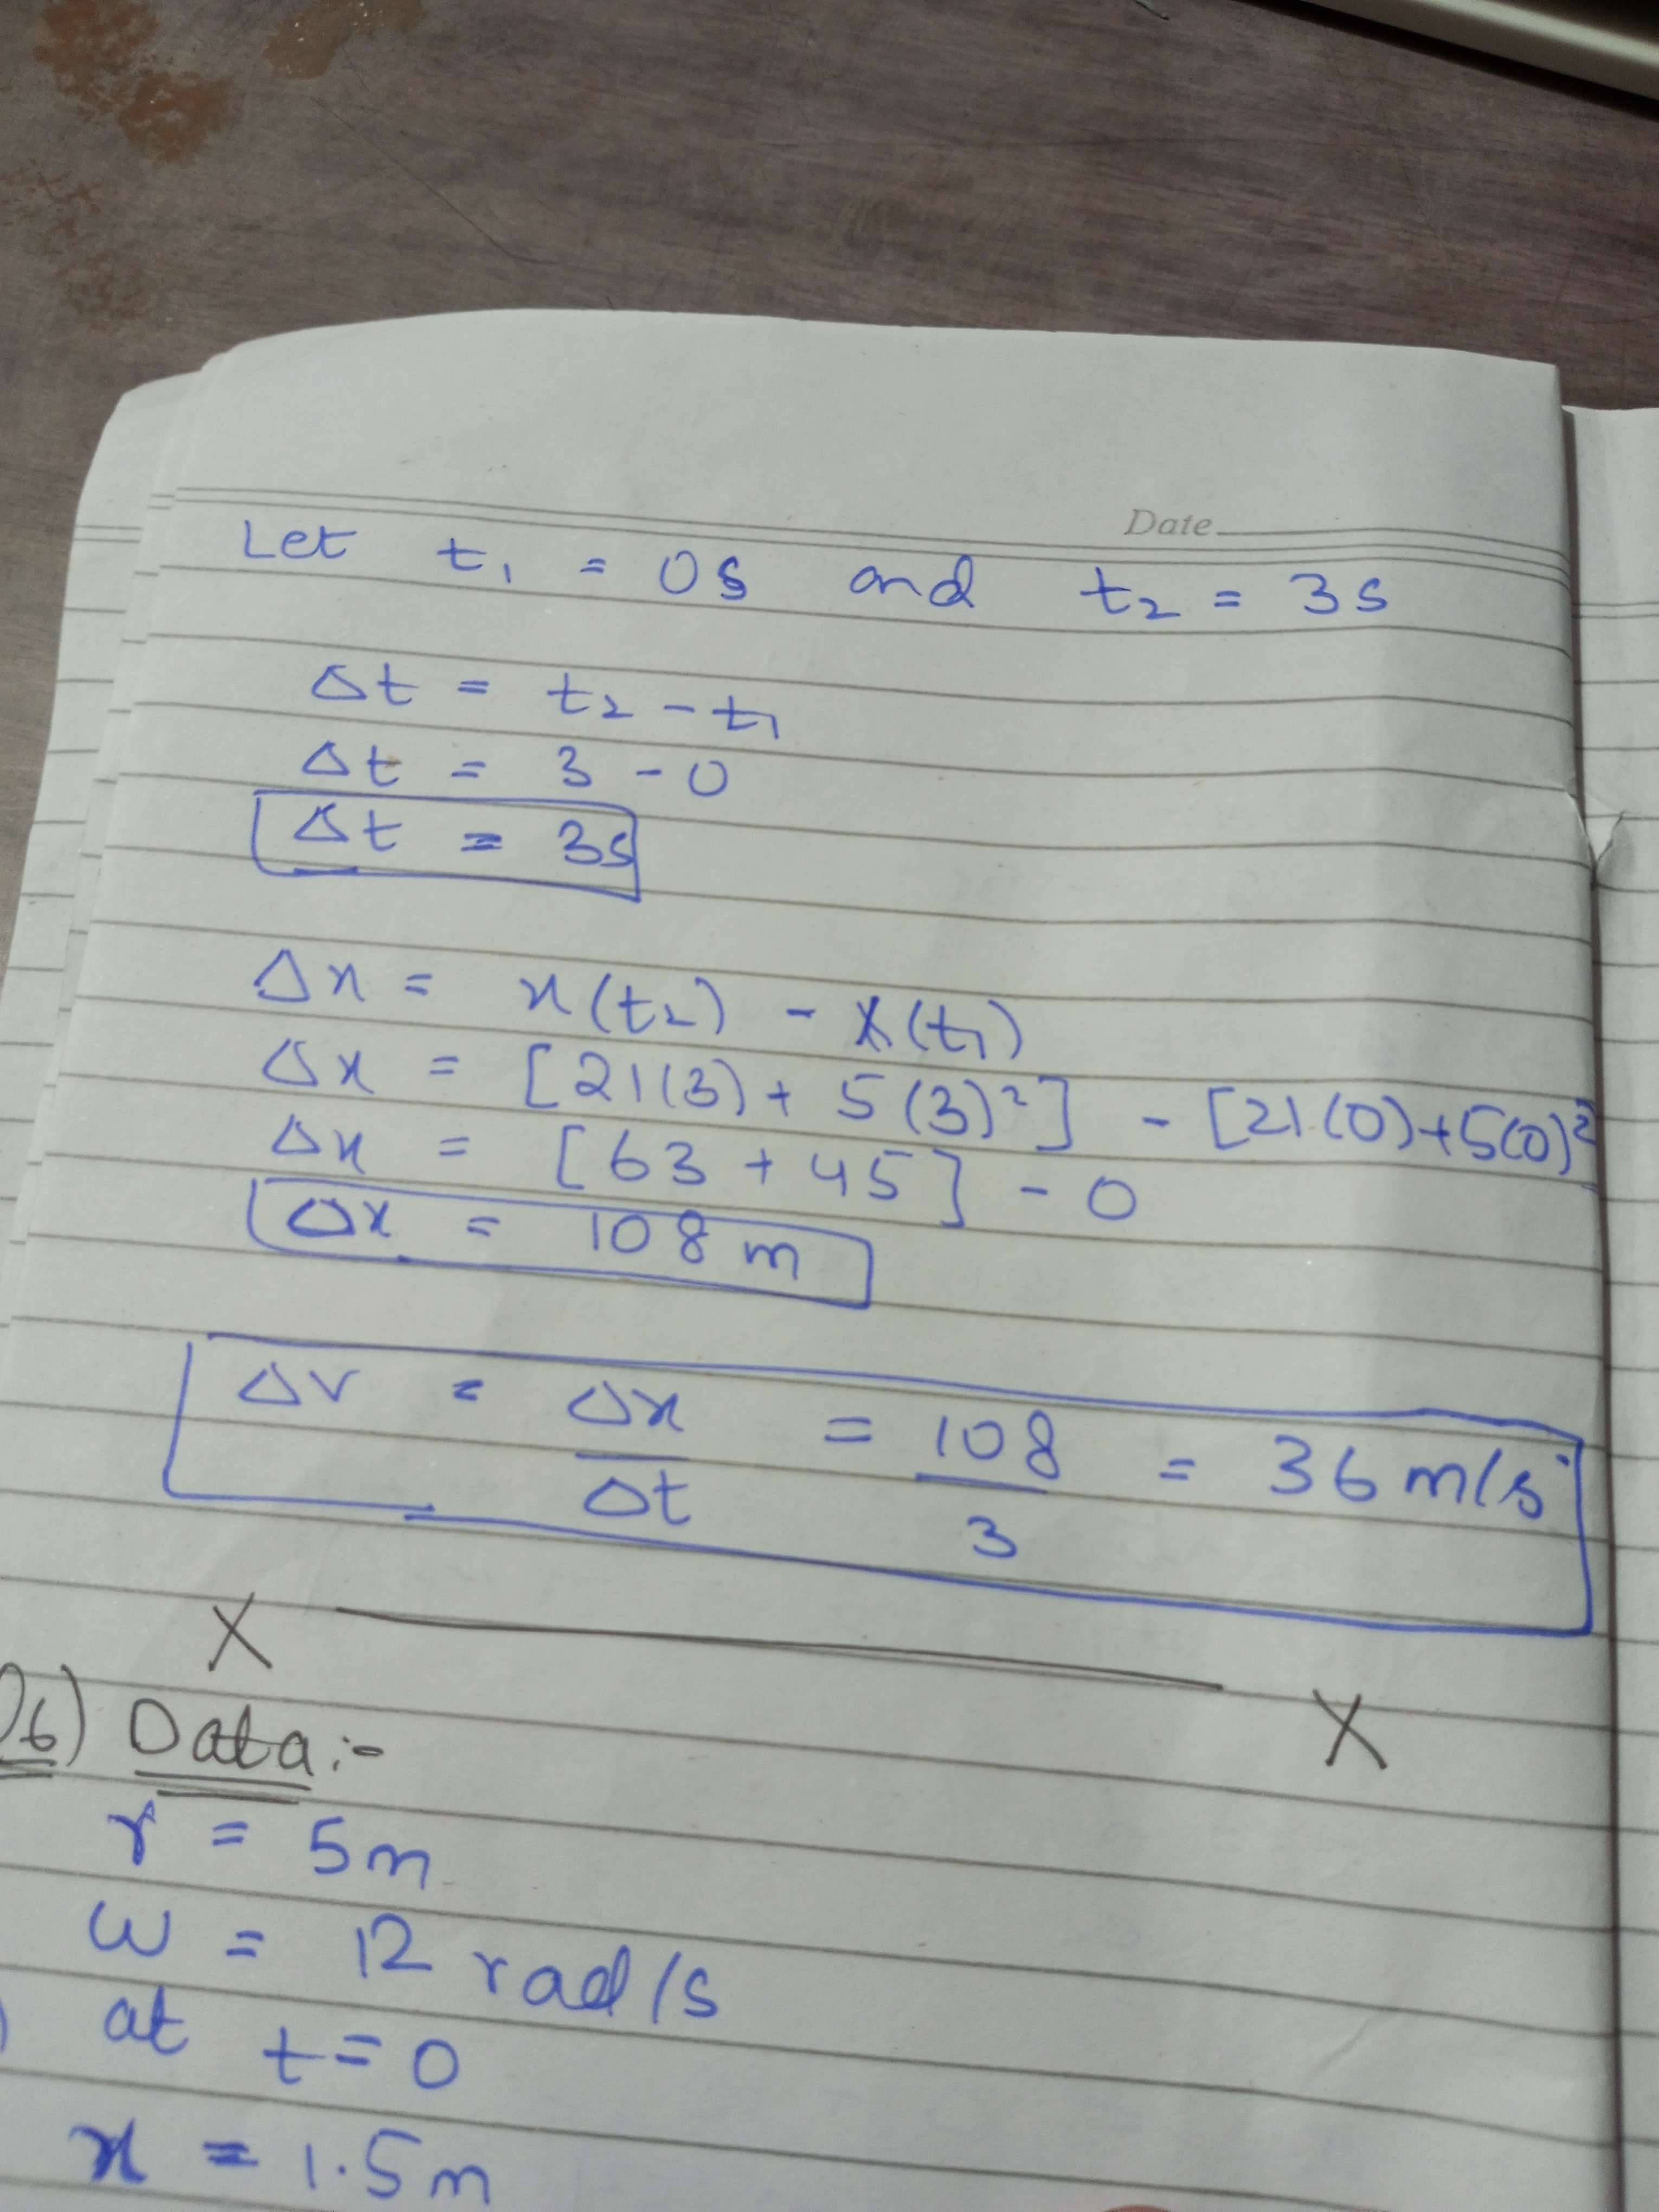 Date
Let t₁ = 0s and t₂ = 3s
Δt = t₂ - t₁
Δt = 3 - 0
Δt = 3s
Δx = x(t₂) - x(t₁)
Δx = [21(3) + 5(3)²] - [21(0)+5(0)²
Δx = [63 + 45] - 0
Δx = 108 m
Δv = Δx/Δt = 108/3 = 36 m/s
X X
Q6) Data:-
r = 5m
ω = 12 rad/s
) at t=0
x = 1.5m